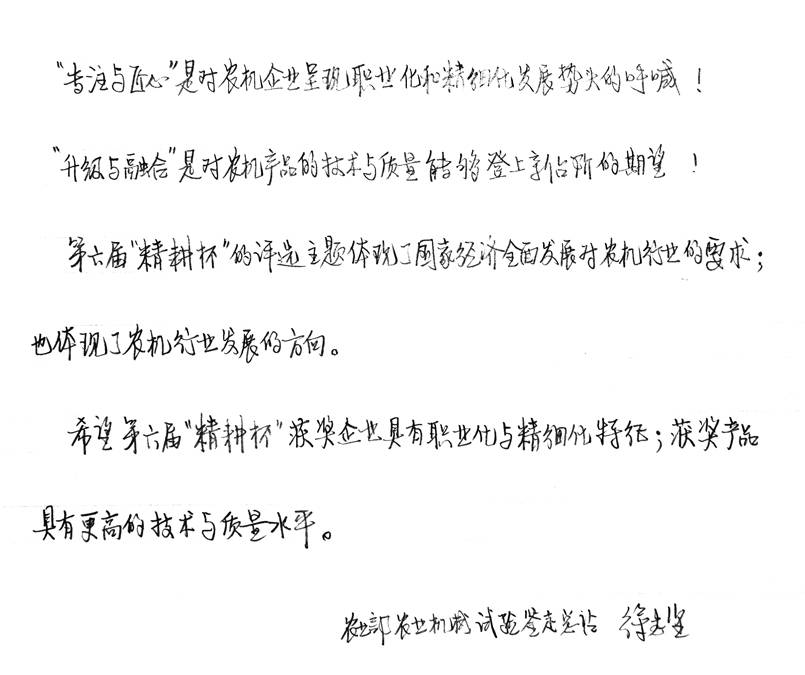 “专注与匠心”是对农机企业呈现职业化和精细化发展势头的呼喊！
“升级与融合”是对农机产品的技术与质量能够登上新台阶的期望！
第六届“精耕杯”的评选主题体现了国家经济全面发展对农机行业的要求；
也体现了农机行业发展的方向。
希望第六届“精耕杯”获奖企业具有职业化与精细化特征；获奖产品
具有更高的技术与质量水平。
农业部农业机械试验鉴定总站 徐志坚